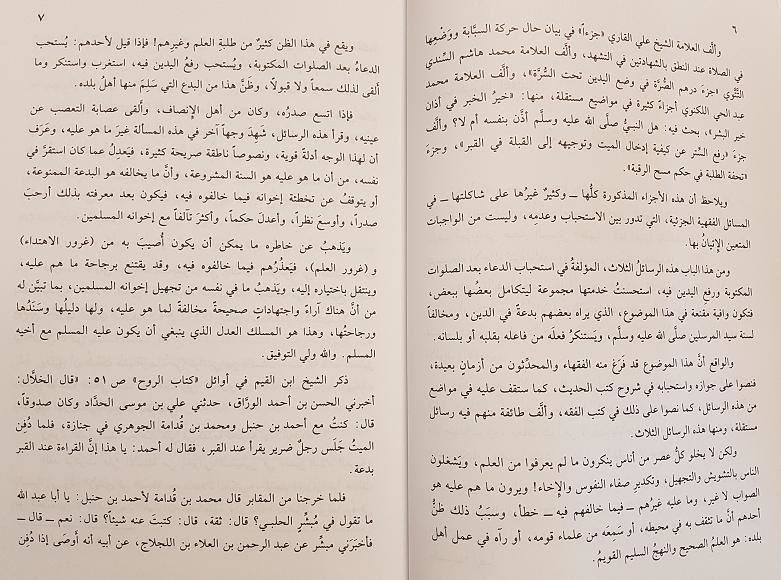 ٦
وألَّف العلامة الشيخ علي القاري «جزءاً» في بيان حال حركة السبَّابة ووَضْعِها
في الصلاة عند النطق بالشهادتين في التشهد، وألَّف العلامة محمد هاشم السِّندي
التَّتَّوي «جزءَ درهم الصُّرَّة في وضع اليدين تحت السُّرَّة»، وألَّف العلامة محمد
عبد الحي اللكنوي أجزاءً كثيرة في مواضيع مستقلة، منها: «خيرُ الخبر في أذان
خير البشر»، بحث فيه: هل النبيُّ صلَّى الله عليه وسلَّم أذَّن بنفسه أم لا؟ وألَّف
جزءَ «رفع السِّتر عن كيفية إدخال الميت وتوجيهه إلى القبلة في القبر»، وجزءَ
«تحفة الطلبة في حكم مسح الرقبة».
ويلاحظ أن هذه الأجزاء المذكورة كلَّها ــ وكثيرٌ غيرُها على شاكلتها ــ في
المسائل الفقهية الجزئية، التي تدور بين الاستحباب وعدمِه، وليست من الواجبات
المتعين الإتيانُ بها.
ومن هذا الباب هذه الرسائلُ الثلاث، المؤلفةُ في استحباب الدعاء بعد الصلوات
المكتوبة ورفعِ اليدين فيه، استحسنتُ خدمتها مجموعة ليتكامل بعضُها ببعض،
فتكون وافية مقنعة في هذا الموضوع، الذي يراه بعضهم بدعةً في الدين، ومخالفاً
لسنة سيد المرسلين صلَّى الله عليه وسلَّم، ويَستنكرُ فعلَه من فاعله بقلبه أو بلسانه.
والواقع أنَّ هذا الموضوع قد فَرَغَ منه الفقهاء والمحدِّثون من أزمانٍ بعيدة،
فنصوا على جوازه واستحبابه في شروح كتب الحديث، كما ستقف عليه في مواضع
من هذه الرسائل، كما نصوا على ذلك في كتب الفقه، وألَّف طائفة منهم فيه رسائل
مستقلة، ومنها هذه الرسائل الثلاث.
ولكن لا يخلو كلُّ عصر من أناس ينكرون ما لم يعرفوا من العلم، ويَشغلون
الناس بالتشويش والتجهيل، وتكدير صفاء النفوس والإخاء! ويرون ما هم عليه هو
الصواب لا غير، وما عليه غيرُهم ــ فيما خالفهم فيه ــ خطأ، وسبَبُ ذلك ظنُّ
أحدهم أنَّ ما تثقف به في محيطه، أو سَمِعَه من علماء قومه، أو رآه في عمل أهل
بلده: هو العلمُ الصحيح والنهجُ السليم القويمُ.
٧
ويقع في هذا الظن كثيرٌ من طلبةِ العلم وغيرِهم! فإذا قيل لأحدهم: يُستحب
الدعاءُ بعد الصلوات المكتوبة، ويُستحب رفعُ اليدين فيه، استغرب واستنكر وما
ألقى لذلك سمعاً ولا قبولاً، وظَنَّ هذا من البدع التي سَلِمَ منها أهلُ بلده.
فإذا اتسع صدرُه، وكان من أهل الإنصاف، وألقى عصابة التعصب عن
عينيه، وقرأ هذه الرسائل، شَهِدَ وجهاً آخر في هذه المسألة غيرَ ما هو عليه، وعَرَف
أن لهذا الوجه أدلةً قوية، ونصوصاً ناطقة صريحة كثيرة، فيَعدِلُ عما كان استقرَّ في
نفسه، من أن ما هو عليه هو السنة المشروعة، وأنَّ ما يخالفه هو البدعة الممنوعة،
أو يتوقفُ عن تخطئة إخوانه فيما خالفوه فيه، فيكون بعد معرفته بذلك أرحبَ
صدراً، وأوسعَ نظراً، وأعدلَ حكماً، وأكثرَ تآلفاً مع إخوانه المسلمين.
ويَذهبُ عن خاطره ما يمكن أن يكون أُصيبَ به من (غرور الاهتداء)
و (غرور العلم)، فيَعذُرُهم فيما خالفوه فيه، وقد يقتنع برجاحة ما هم عليه،
وينتقل باختياره إليه، ويَذهبُ ما في نفسه من تجهيل إخوانه المسلمين، بما تبيَّن له
من أنَّ هناك آراءً واجتهاداتٍ صحيحةً مخالفةً لما هو عليه، ولها دليلُها وسَنَدُها
ورجاحتُها، وهذا هو المسلك العدل الذي ينبغي أن يكون عليه المسلم مع أخيه
المسلم. والله ولي التوفيق.
ذكر الشيخ ابن القيم في أوائل «كتاب الروح» ص ٥١: «قال الخلَّال:
أخبرني الحسن بن أحمد الورَّاق، حدثني علي بن موسى الحدَّاد وكان صدوقاً،
قال: كنتُ مع أحمد بن حنبل ومحمد بن قُدامة الجوهري في جنازة، فلما دُفِن
الميتُ جَلَس رجلٌ ضرير يقرأ عند القبر، فقال له أحمد: يا هذا إنَّ القراءة عند القبر
بدعة.
فلما خرجنا من المقابر قال محمد بن قُدامة لأحمد بن حنبل: يا أبا عبد الله
ما تقول في مُبشِّرٍ الحلبي؟ قال: ثقة، قال: كتبتَ عنه شيئاً؟ قال: نعم ــ قال ــ
فأخبَرَني مبشِّر عن عبد الرحمن بن العلاء بن اللجلاج، عن أبيه أنه أَوصَى إذا دُفِن